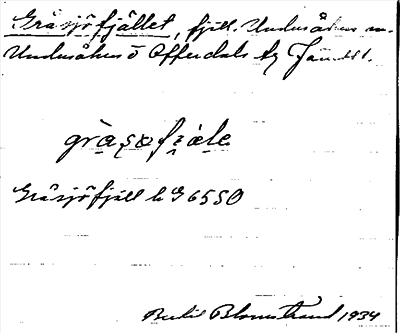 Gråsjöfjället, fjäll. Undersåkers sn.
Undersåkers o Offerdals tg Jämtl.
gràsǫfiæ̀le
Gråsjöfjäll h G 65 SO
Bertil Blomstrand 1934